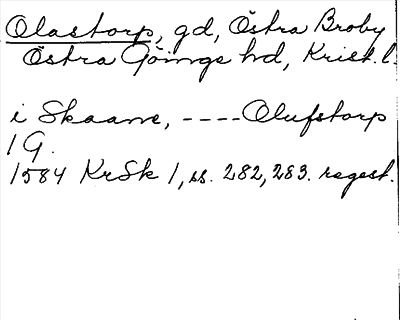 Olastorp, gd, Östra Broby
Östra Göinge hd, Krist. l.
i Skaane, ---- Olufstorp
1 G.
1584 KrSk 1, ss. 282, 283. regest.